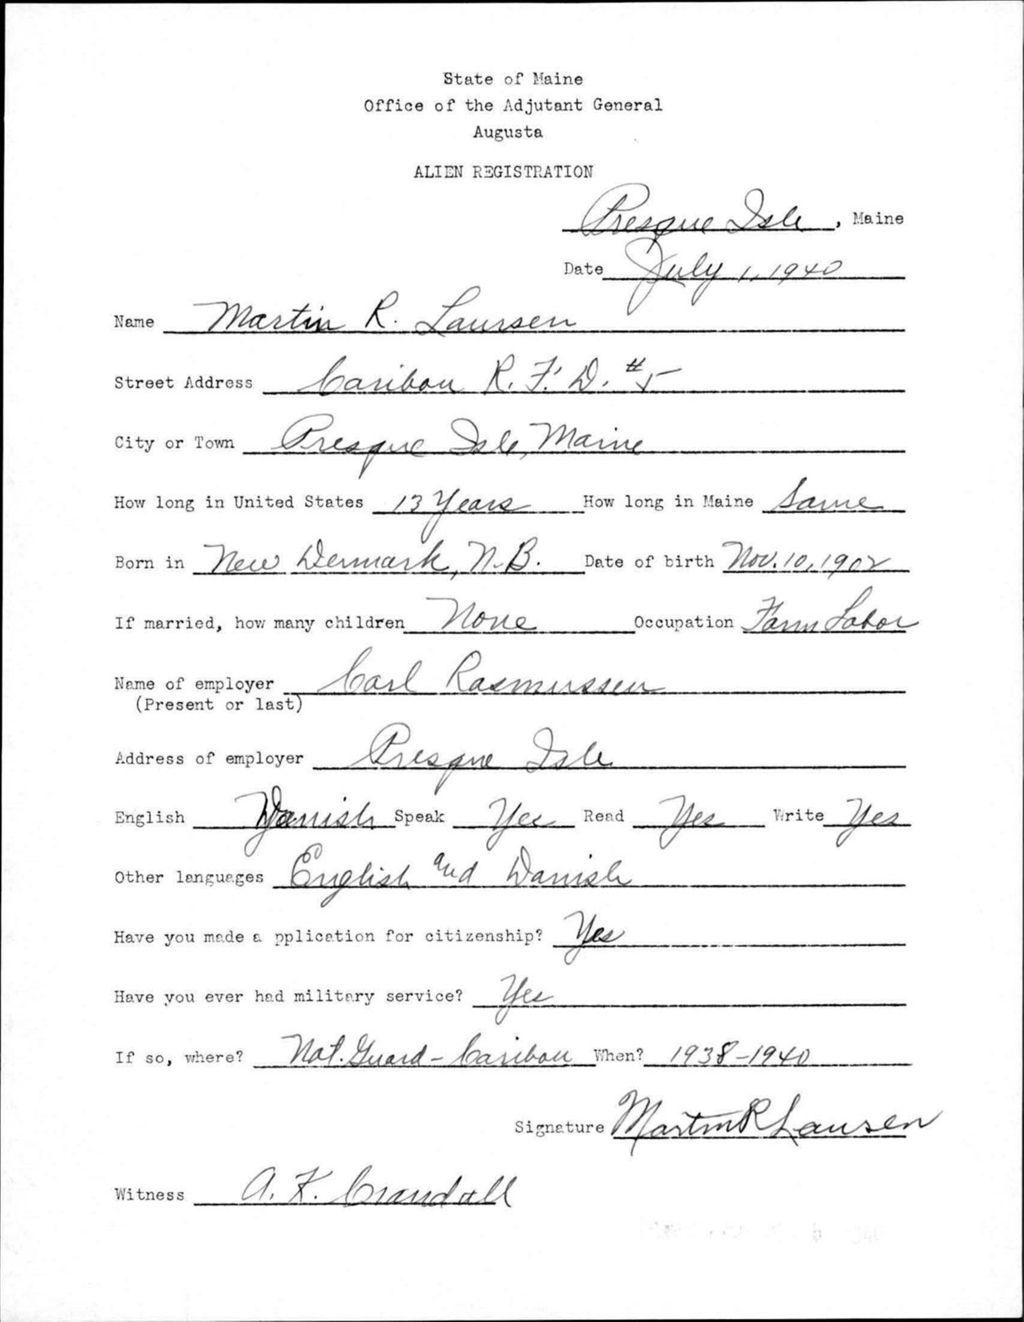 State of Maine
Office of the Adjutant General
Augusta
ALIEN REGISTRATION
Presque Isle, Maine
Date July 1, 1940
Name Martin R. Laursen
Street Address Caribou R.F.D. #5
City or Town Presque Isle, Maine
How long in United States 13 Years How long in Maine Same
Born in New Denmark, N.B. Date of birth Nov. 10, 1902
If married, how many children None Occupation Farm Labor
Name of employer Carl Rasmussen
(Present or last)
Address of employer Presque Isle
English Danish Speak Yes Read Yes Write Yes
Other languages English and Danish
Have you made a pplication for citizenship? Yes
Have you ever had military service? Yes
If so, where? Nat. Guard - Caribou When? 1938-1940
Signature Martin R Laursen
Witness A. K. Crandall